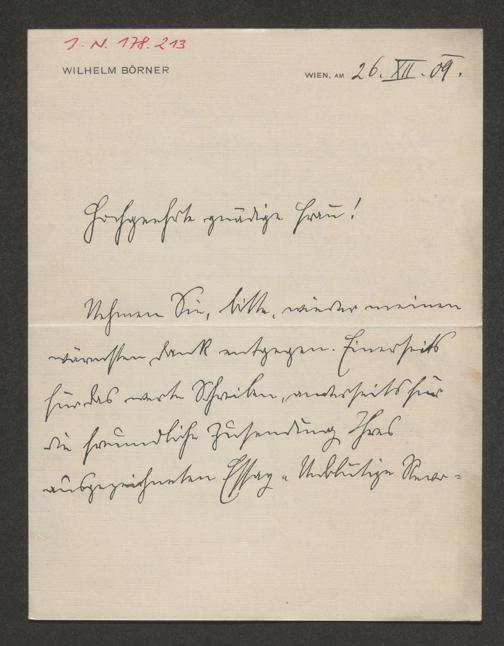 J. N. 178.213
WILHELM BÖRNER
WIEN, AM 26. XII. 09.
Hochgeehrte gnädige Frau!
Nehmen Sie, bitte, wieder meinen
wärmsten Dank entgegen. Einerseits
für das werte Schreiben, anderseits für
die freundliche Zusendung Ihres
ausgezeichneten Essay „Unblutige